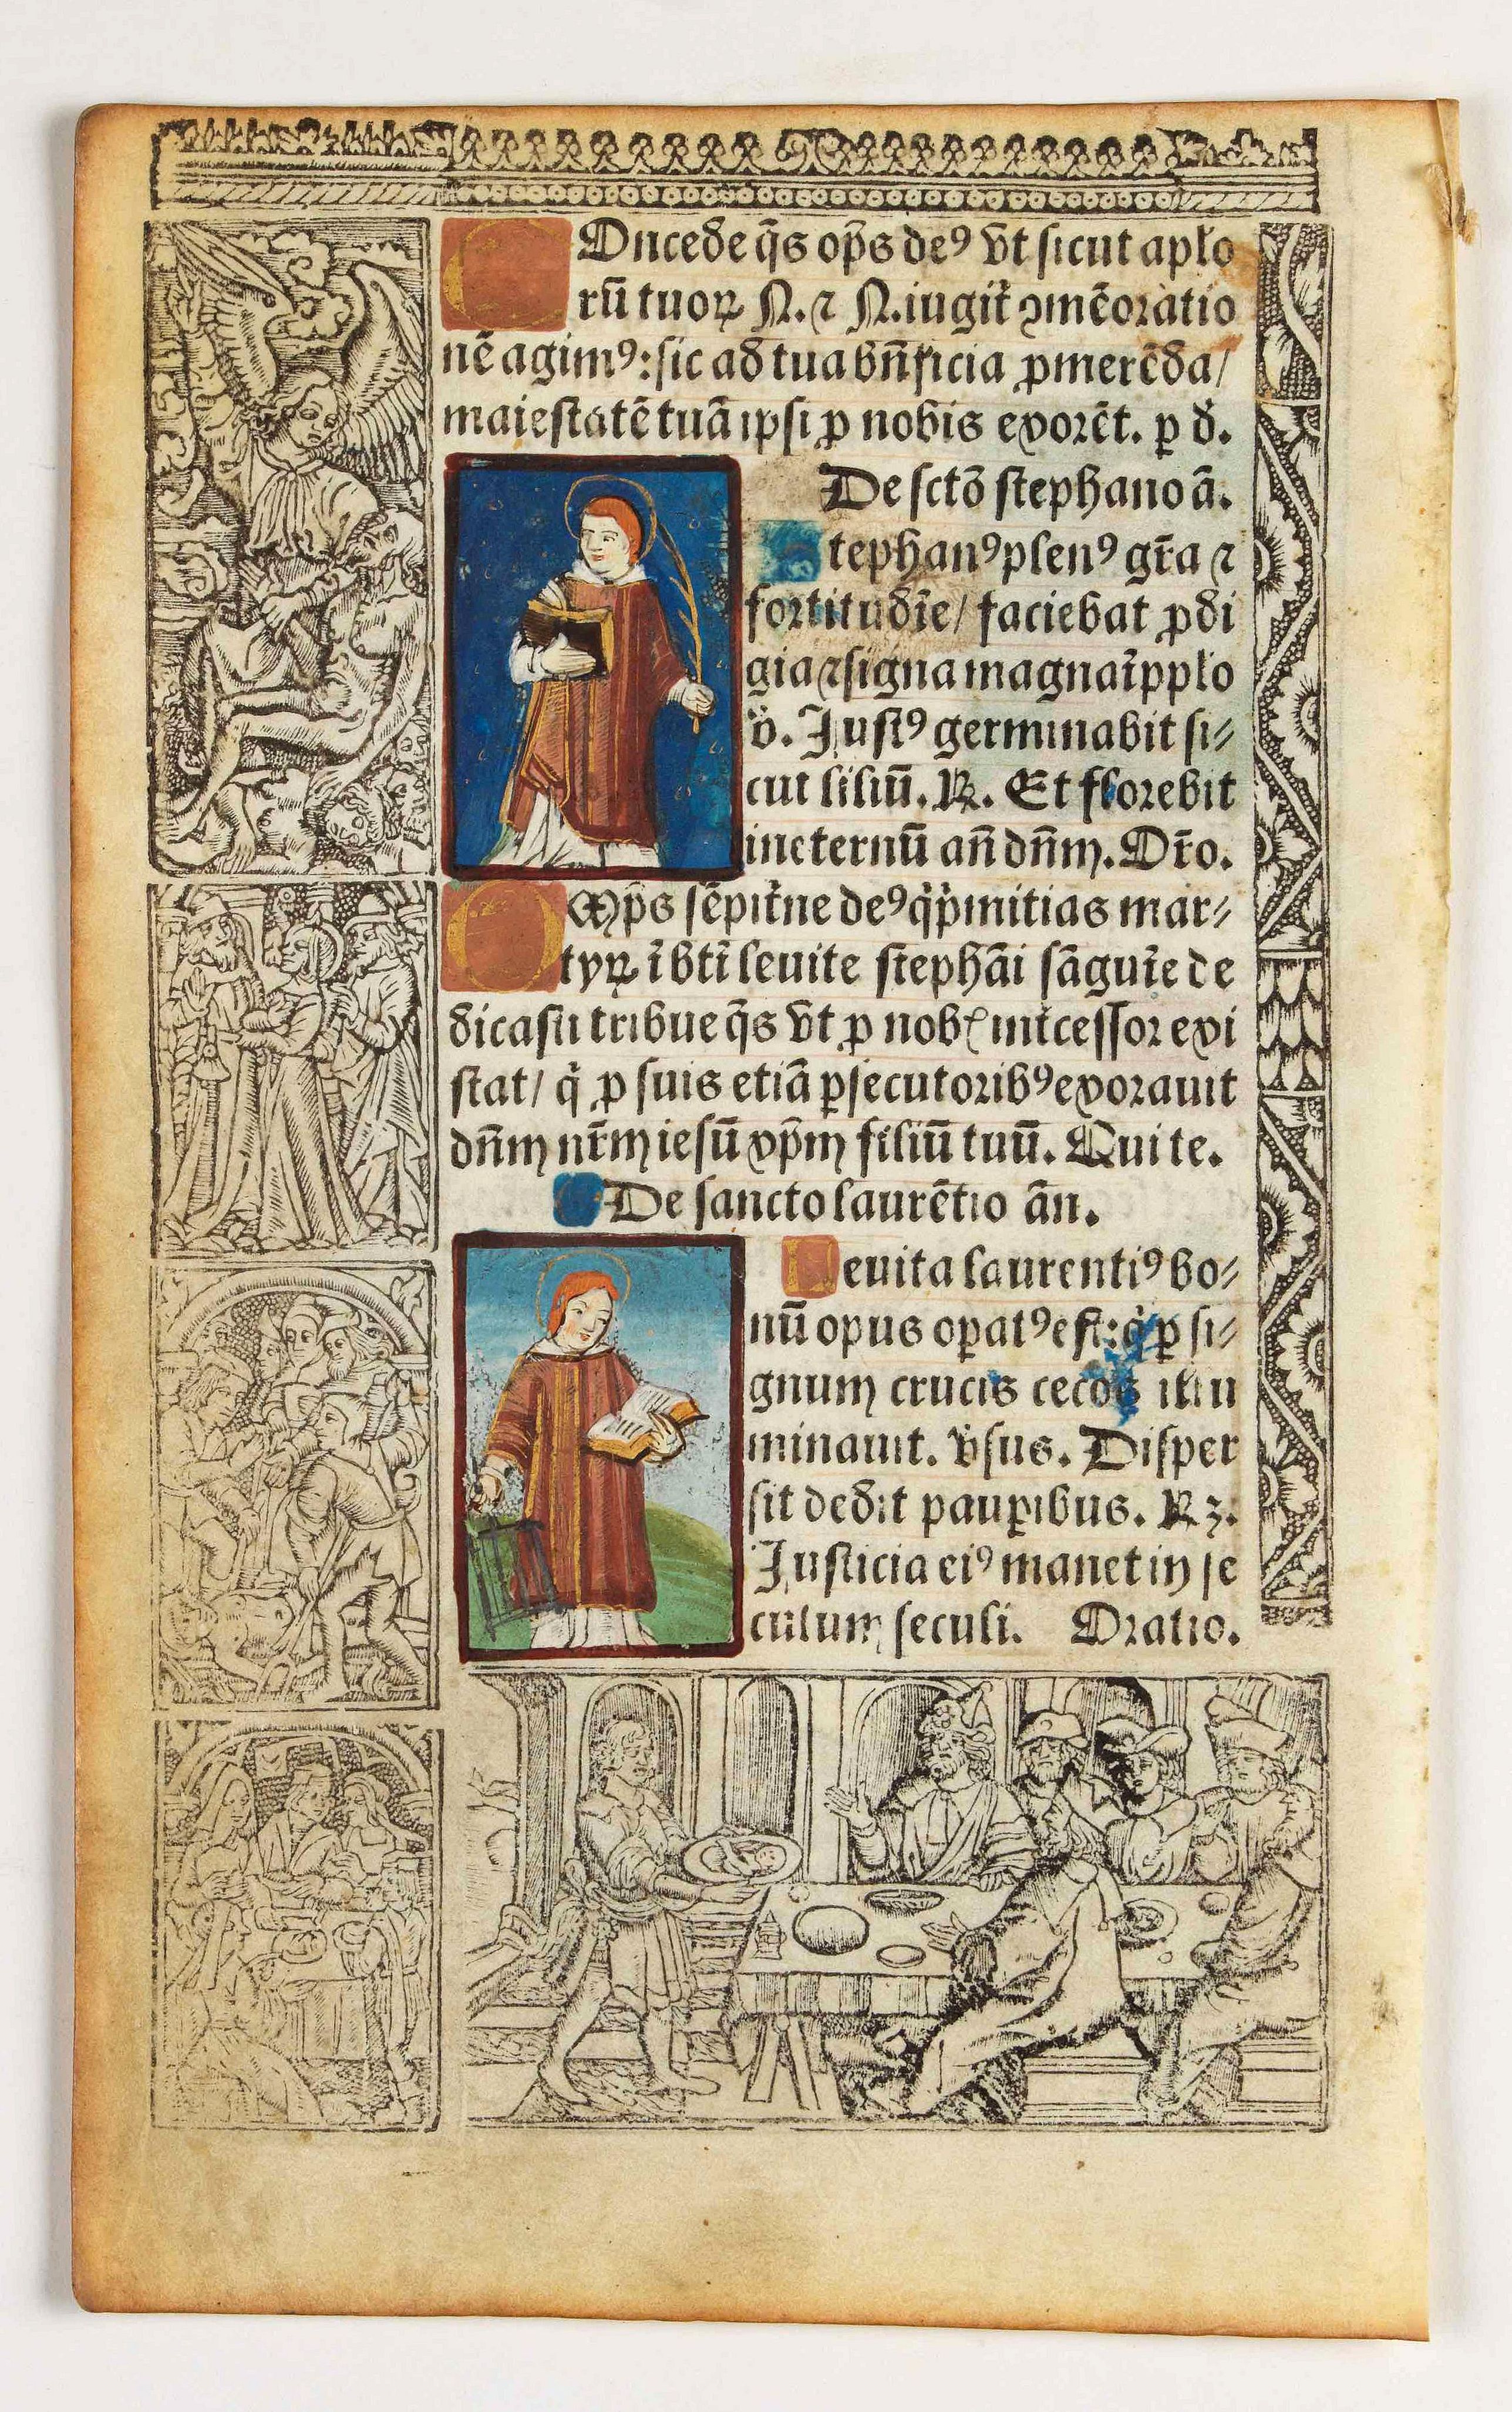 COncede q̄s op̄s deꝰ vt sicut aplo
rū tuoꝝ N. ⁊ N. iugit᷑ ꝯmēoratio
nē agimꝰ: sic ad tua bn̄ficia ꝓmerēda /
maiestatē tuā ipsi ꝓ nobis exorēt. ꝑ d̄.
De sctō stephano ā.
Stephanꝰ plenꝰ gr̄a ⁊
fortitudīe / faciebat ꝓdi
gia ⁊ signa magna ī pplo
v̄. Justꝰ germinabit si⸗
cut liliū. ℟. Et florebit
ineternū an̄ dn̄m. Or̄o.
OMp̄s sēpit᷑ne deꝰ qͥ pͥmitias mar⸗
tyꝝ ī bt̄i leuite stephāi sāguīe de
dicasti tribue q̄s vt ꝓ nobꝭ int᷑cessor exi
stat / qͥ ꝓ suis etiā ꝑsecutoribꝰ exorauit
dn̄m nr̄m iesū xp̄m filiū tuū. Qui te.
De sancto laurētio ān.
Leuita laurentiꝰ bo⸗
nū opus oꝑatꝰ est: qͥ ꝑ si⸗
gnum crucis cecos illu
minauit. v̄sus. Disper
sit dedit pauꝑibus. ℟ꝫ.
Justicia eiꝰ manet in se
culum seculi. Oratio.